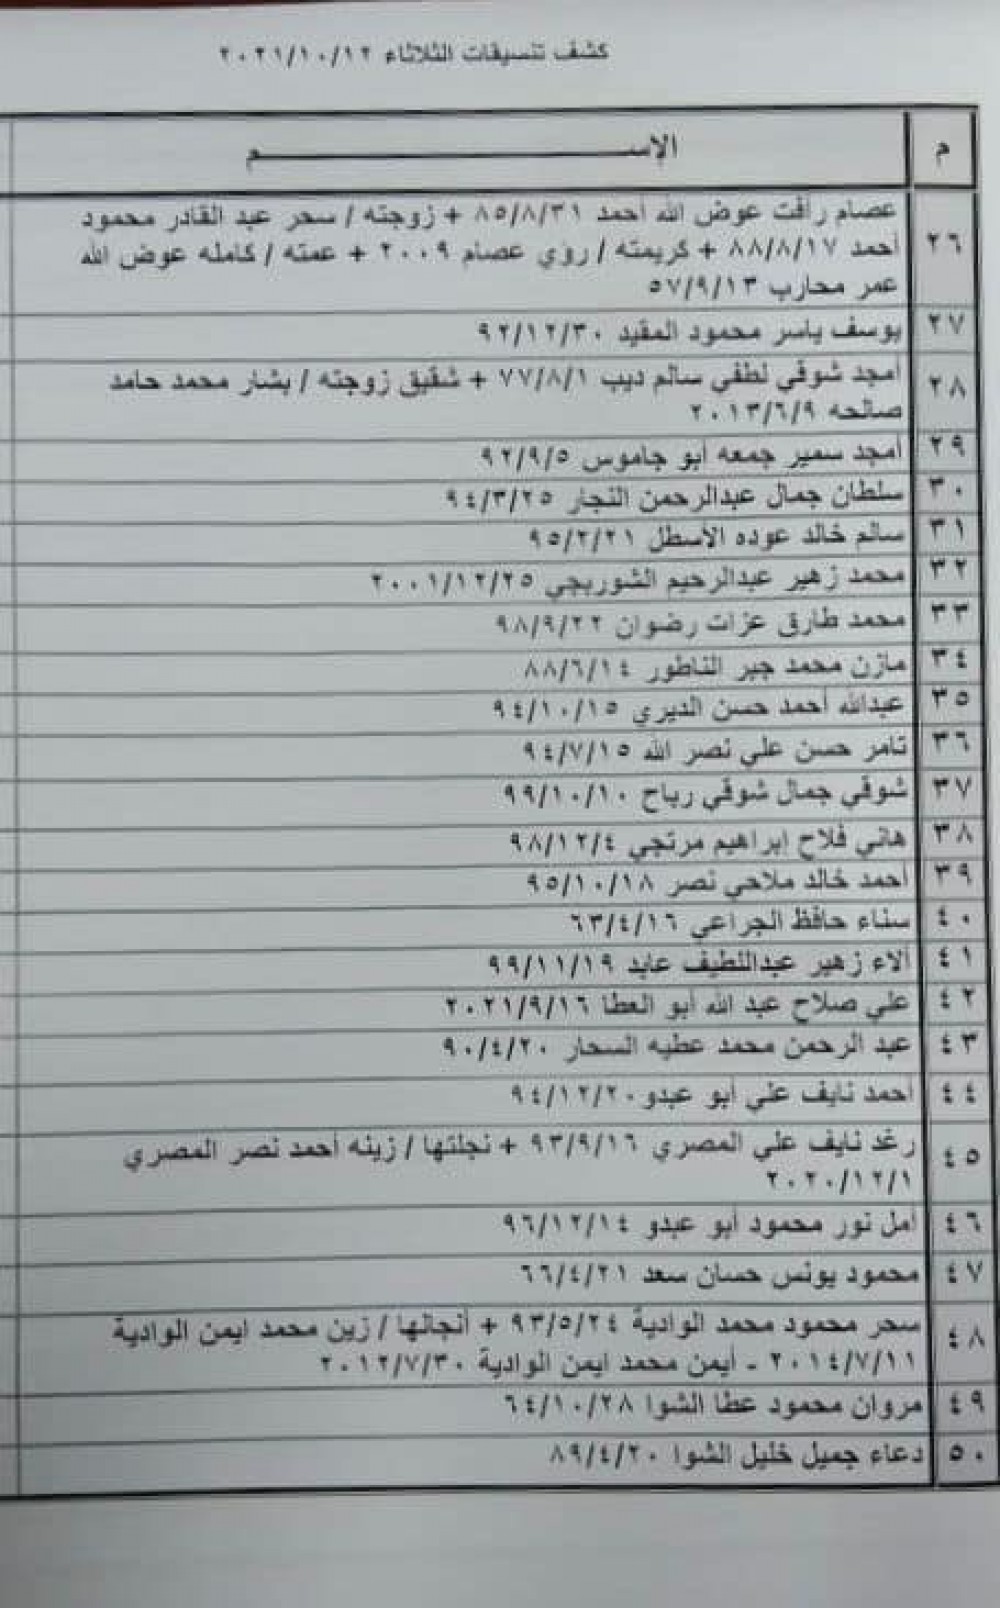 كشف تنسيقات الثلاثاء ٢٠٢١/١٠/١٢
م
الإســـــم
٢٦
عصام رأفت عوض الله احمد ٨٥/٨/٣١ + زوجته / سحر عبد القادر محمود
أحمد ٨٨/٨/١٧ + كريمته / روي عصام ٢٠٠٩ + عمته / كامله عوض الله
عمر محارب ٥٧/٩/١٣
٢٧
يوسف ياسر محمود المقيد ٩٢/١٢/٣٠
٢٨
أمجد شوقي لطفي سالم ديب ٧٧/٨/١ + شقيق زوجته / بشار محمد حامد
صالحه ٢٠١٣/٦/٩
٢٩
أمجد سمير جمعه أبو جاموس ٩٢/٩/٥
٣٠
سلطان جمال عبدالرحمن النجار ٩٤/٣/٢٥
٣١
سالم خالد عوده الأسطل ٩٥/٢/٢١
٣٢
محمد زهير عبدالرحيم الشوربجي ٢٠٠١/١٢/٢٥
٣٣
محمد طارق عزات رضوان ٩٨/٩/٢٢
٣٤
مازن محمد جبر الناطور ٨٨/٦/١٤
٣٥
عبدالله أحمد حسن الديري ٩٤/١٠/١٥
٣٦
تامر حسن علي نصر الله ٩٤/٧/١٥
٣٧
شوقي جمال شوقي رباح ٩٩/١٠/١٠
٣٨
هاني فلاح إبراهيم مرتجي ٩٨/١٢/٤
٣٩
أحمد خالد ملاحي نصر ٩٥/١٠/١٨
٤٠
سناء حافظ الجراعي ٦٣/٤/١٦
٤١
ألاء زهير عبداللطيف عابد ٩٩/١١/١٩
٤٢
علي صلاح عبد الله أبو العطا ٢٠٢١/٩/١٦
٤٣
عبد الرحمن محمد عطيه السحار ٩٠/٤/٢٠
٤٤
أحمد نايف علي أبو عبدو ٩٤/١٢/٢٠
٤٥
رغد نايف علي المصري ٩٣/٩/١٦ + نجلتها / زينه أحمد نصر المصري
٢٠٢٠/١٢/١
٤٦
أمل نور محمود أبو عبدو ٩٦/١٢/١٤
٤٧
محمود يونس حسان سعد ٦٦/٤/٢١
٤٨
سحر محمود محمد الوادية ٩٣/٥/٢٤ + أنجالها / زين محمد ايمن الوادية
٢٠١٤/٧/١١ - أيمن محمد ايمن الوادية ٢٠١٢/٧/٣٠
٤٩
مروان محمود عطا الشوا ٦٤/١٠/٢٨
٥٠
دعاء جميل خليل الشوا ٨٩/٤/٢٠